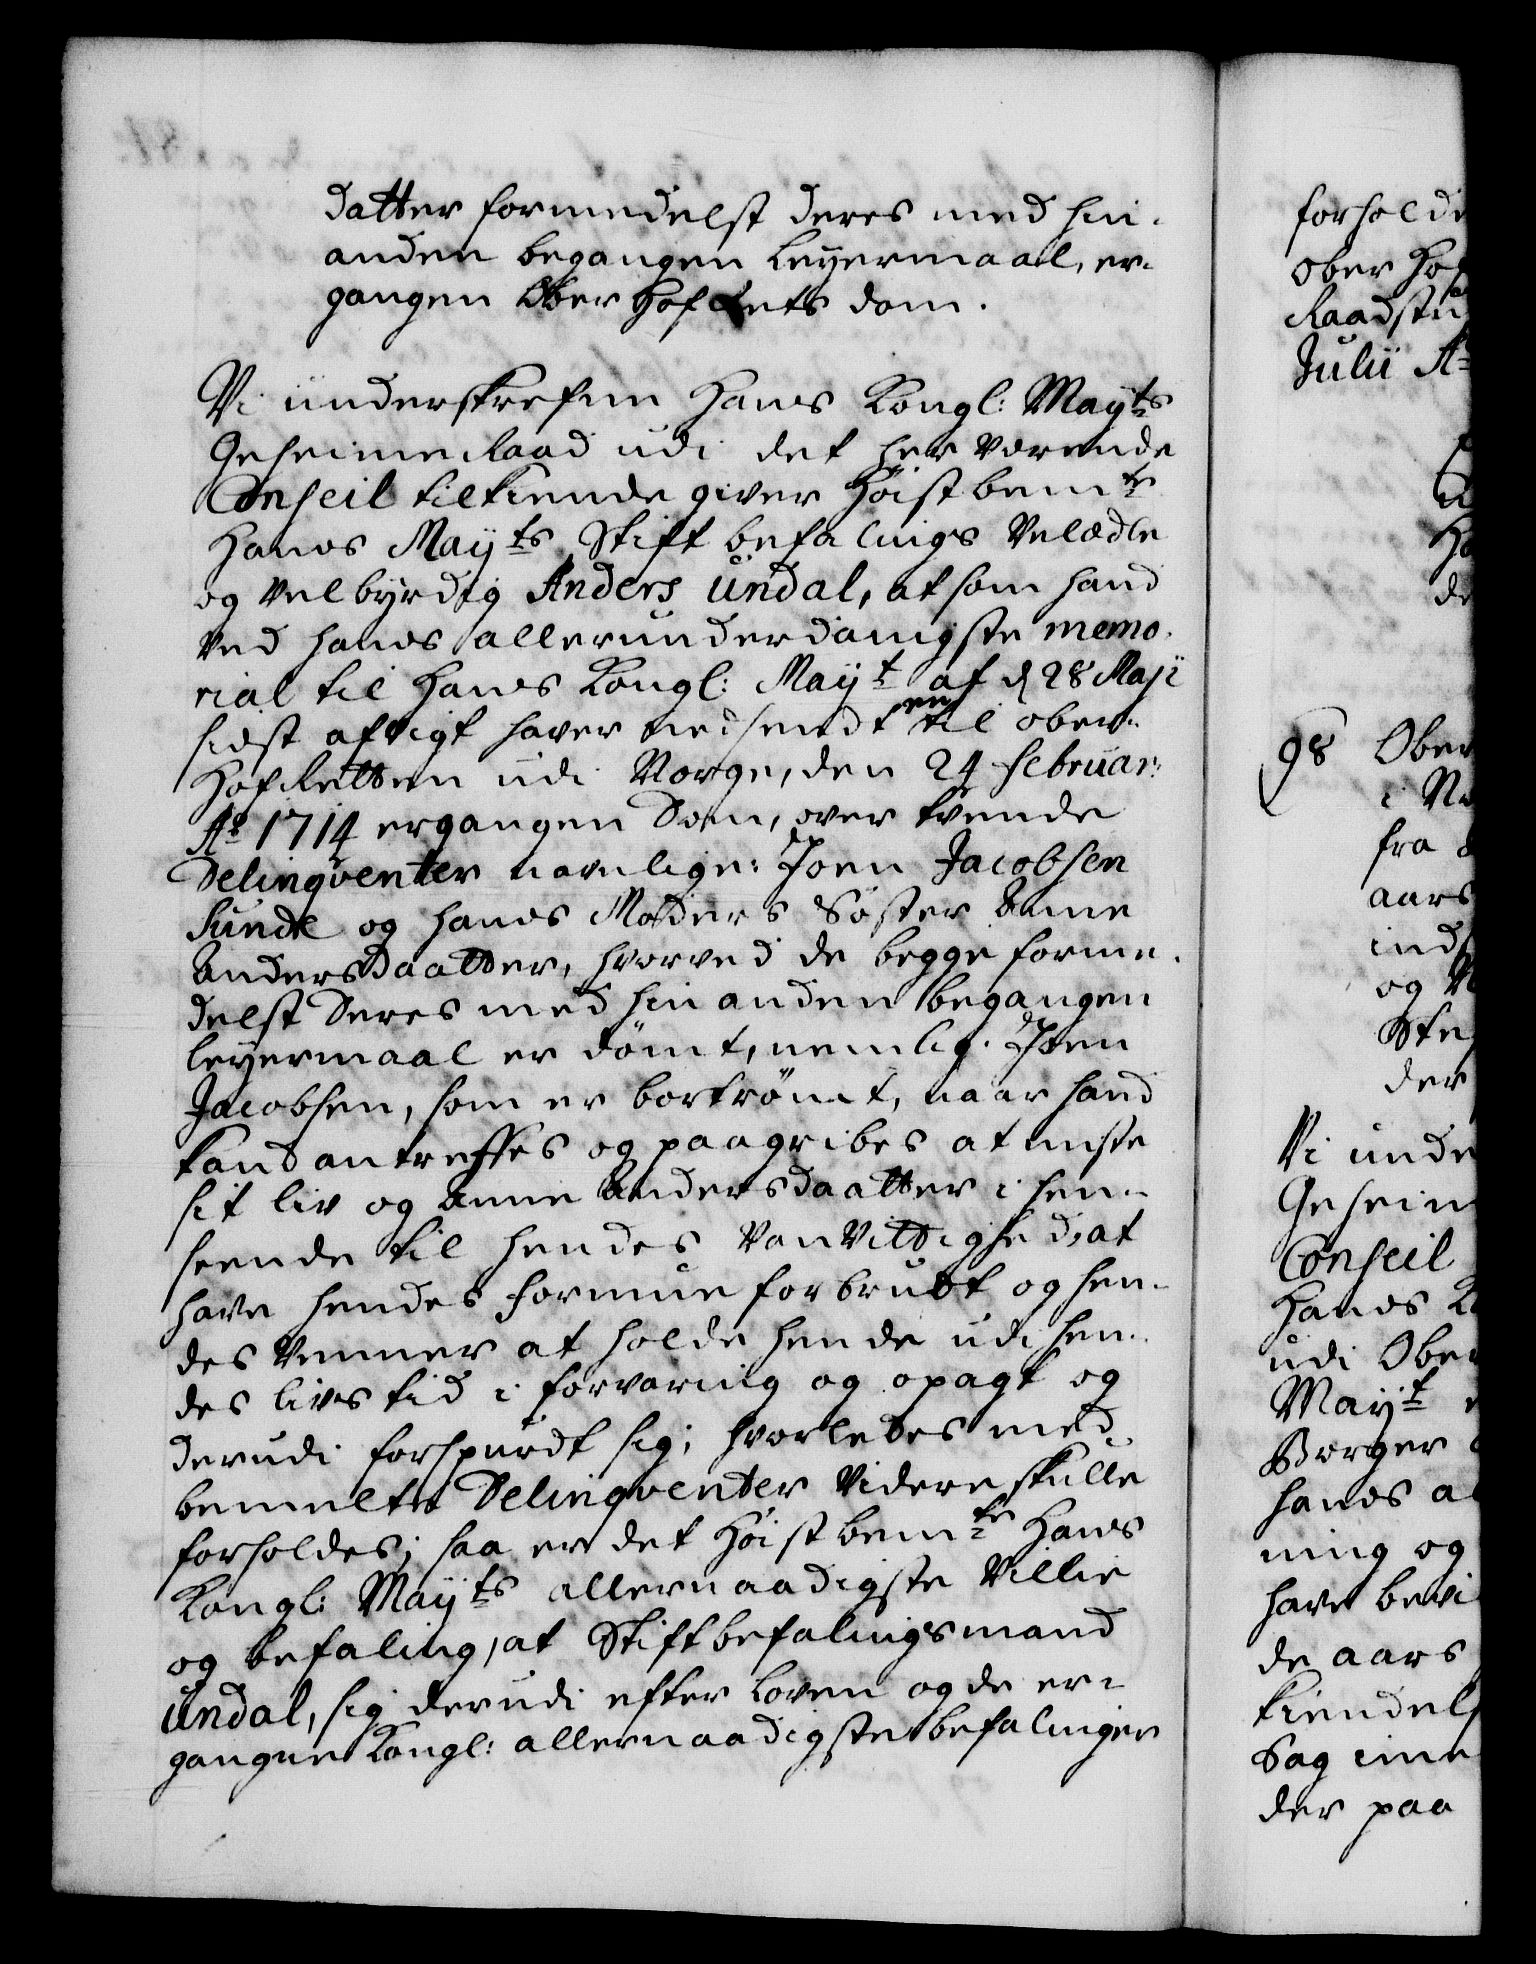 datter formedelst deres med hin-
anden begangen Leyermaal, er-
gangen Ober Hof Rets dom.
Vi underskrefne Hans Kongl: Mayts
Geheime Raad udi det her værende
Conseil tilkiende giver Høistbemte
Hans Mayts Stift befalings Velædle
og Velbyrdig Anders Undal, at som hand
ved hans allerunderdanigste memo-
rial til Hans Kongl: Mayt af d 28 Maji
sidst afvigt haver nedsendt en til ober-
Hof Retten udi Norge, den 24 Februar:
Ao 1714 ergangen Dom, over tvende
Delinqventer navnlige: Joen Jacobsen
Sunde og hans Moders Søster Anne
Andersdaatter, hvorved de begge forme-
delst Deres med hinanden begangen
leyermaal er dømt, nemlig: Joen
Jacobsen, som er bortrømt, naar hand
kand antreffes og paagribes at miste
sit liv og Anne Andersdaatter i hen-
seende til hendes VanVittighed, at
have hendes formue forbrudt og hen-
des Venner at holde hende udi hen-
des livs tid i forvaring og opagt og
derudi forspurdt sig, hvorledes med
bemelte Delinqventer Videre skulle
forholdes; saa er det Høistbemte Hans
Kongl: Mayts allernaadigste Villie
og befaling, at Stiftbefalingsmand
Undal, sig derudi efter loven og de er-
gangne Kongl: allernaadigste befalinger
forholde
Ober Hof
Raadstu
Julii Ao
98 Ober
i No
fra
aars
ind
og
Ste
der
Vi unde
Geheim
Conseil
Hans K
udi Ober
Mayt
Borger
hans al
ning og
have bevi
de aars
kiendels
Sag ime
der paa